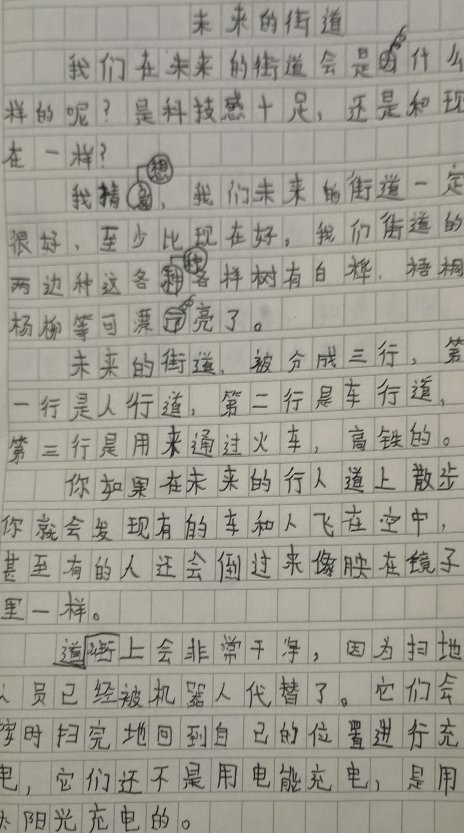 未来的街道
我们在未来的街道会是什么
样的呢？是科技感十足，还是和现
在一样？
我猜想，我们未来的街道一定
很好，至少比现在好。我们街道的
两边种这各种各样树有白桦．梧桐
杨柳等可票亮了。
未来的街道，被分成三行，第
一行是人行道，第二行是车行道，
第三行是用来通过火车，高铁的。
你如果在未来的行人道上散步
你就会发现有的车和人飞在空中，
甚至有的人还会倒过来像映在镜子
里一样。
道街上会非常干净，因为扫地
人员已经被机器人代替了。它们会
时扫完地回到自己的位置进行充
电，它们还不是用电能充电，是用
太阳光充电的。